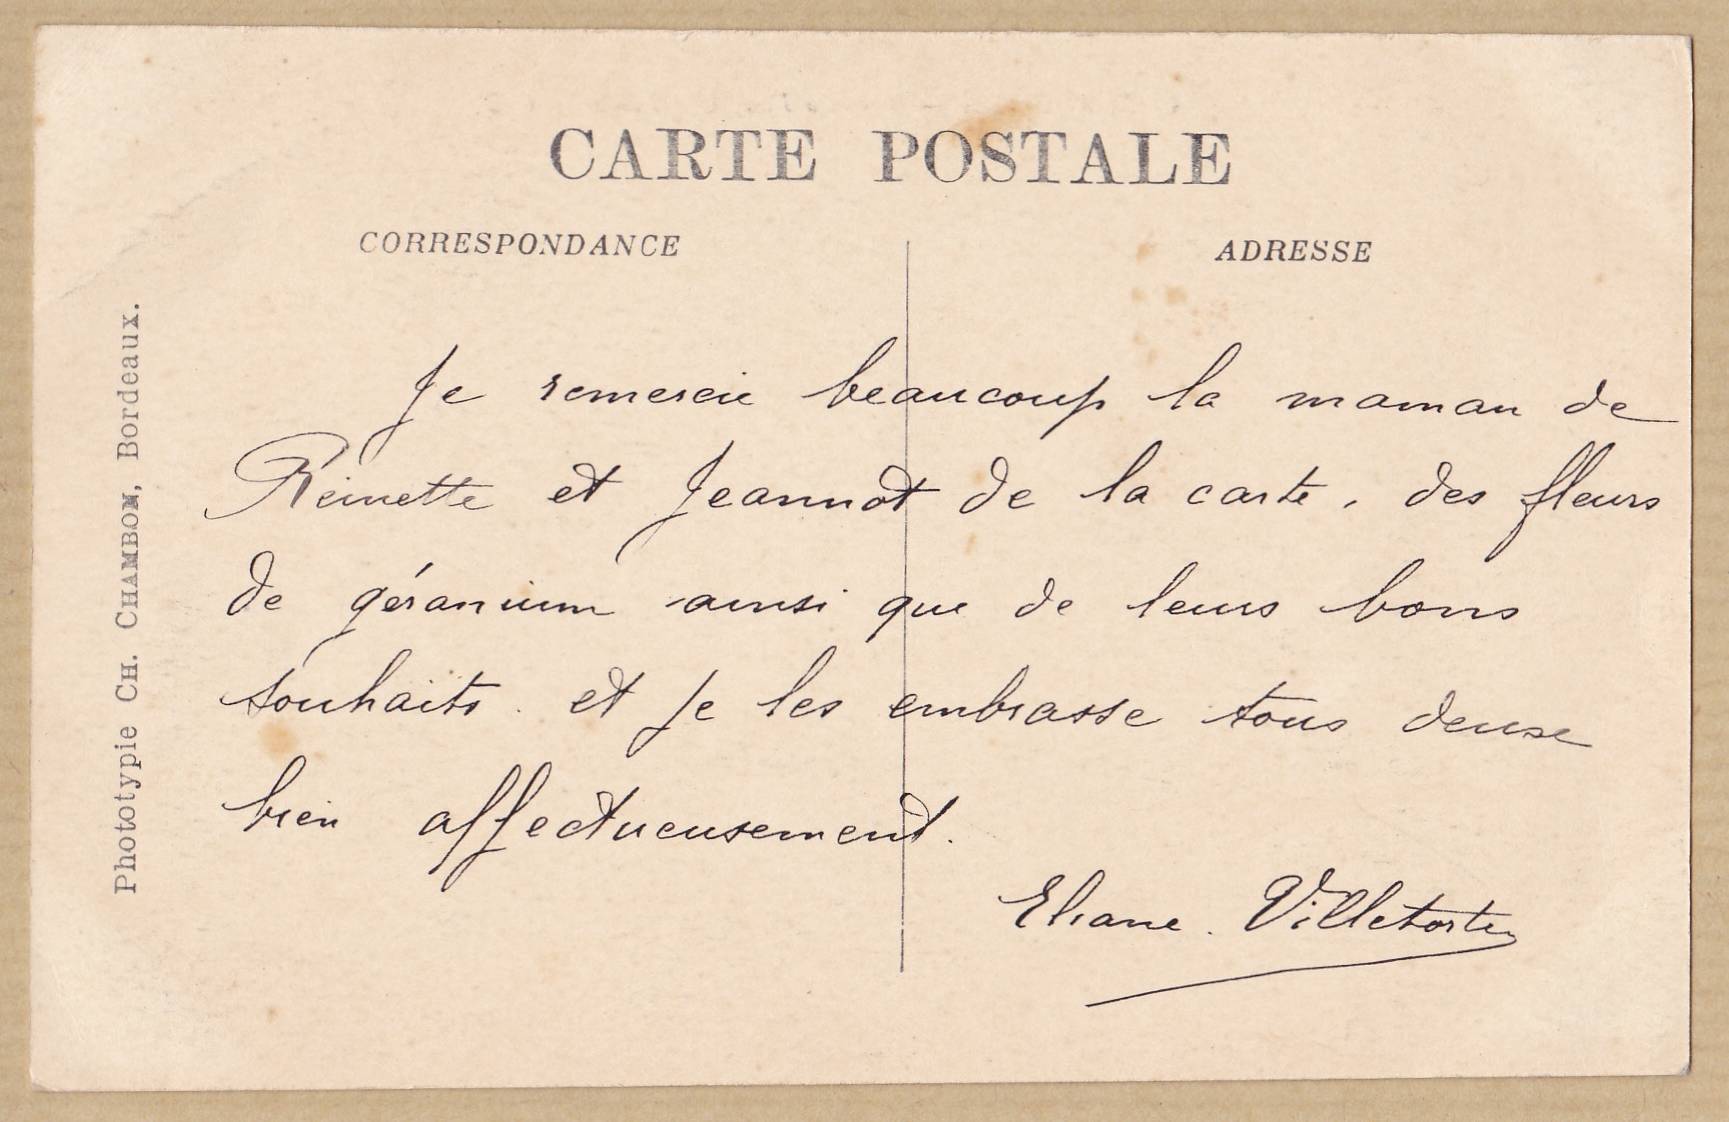 CARTE POSTALE
CORRESPONDANCE
ADRESSE
Phototypie CH. CHAMBON, Bordeaux.
Je remercie beaucoup la maman de
Reinette et Jeannot de la carte, des fleurs
de géranium ainsi que de leurs bons
souhaits. et je les embrasse tous deux
bien affectueusement.
Eliane. Villetorte